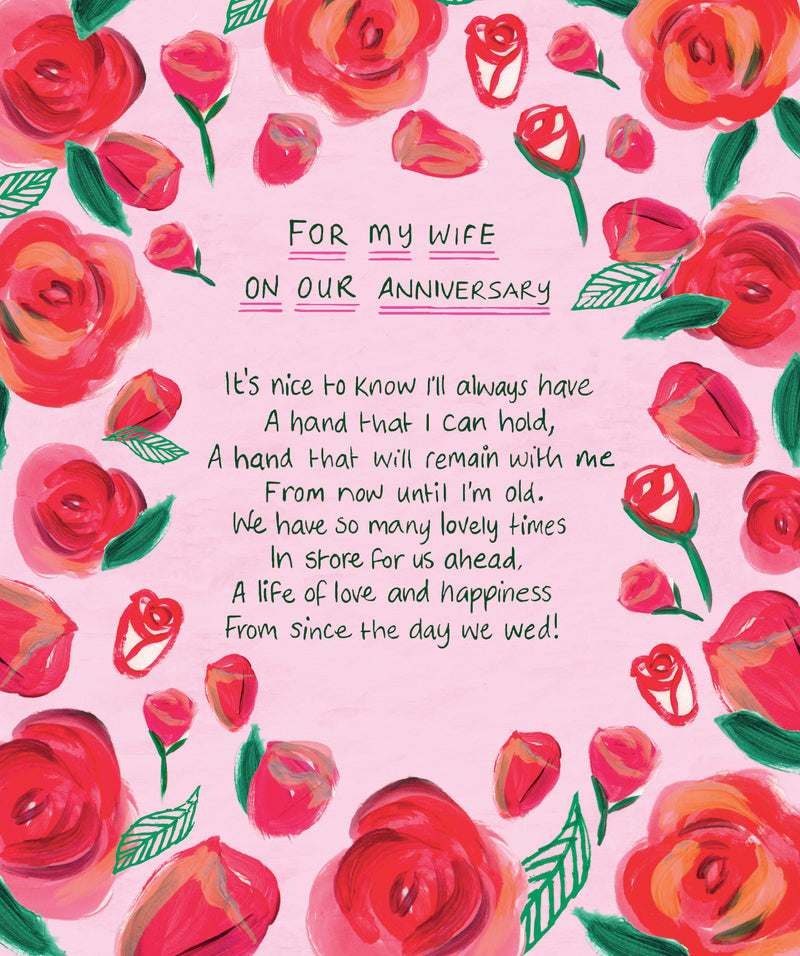 FOR MY WIFE
ON OUR ANNIVERSARY
It's nice to know I'll always have
A hand that I can hold,
A hand that will remain with me
From now until I'm old.
We have so many lovely times
In store for us ahead,
A life of love and happiness
From since the day we wed!